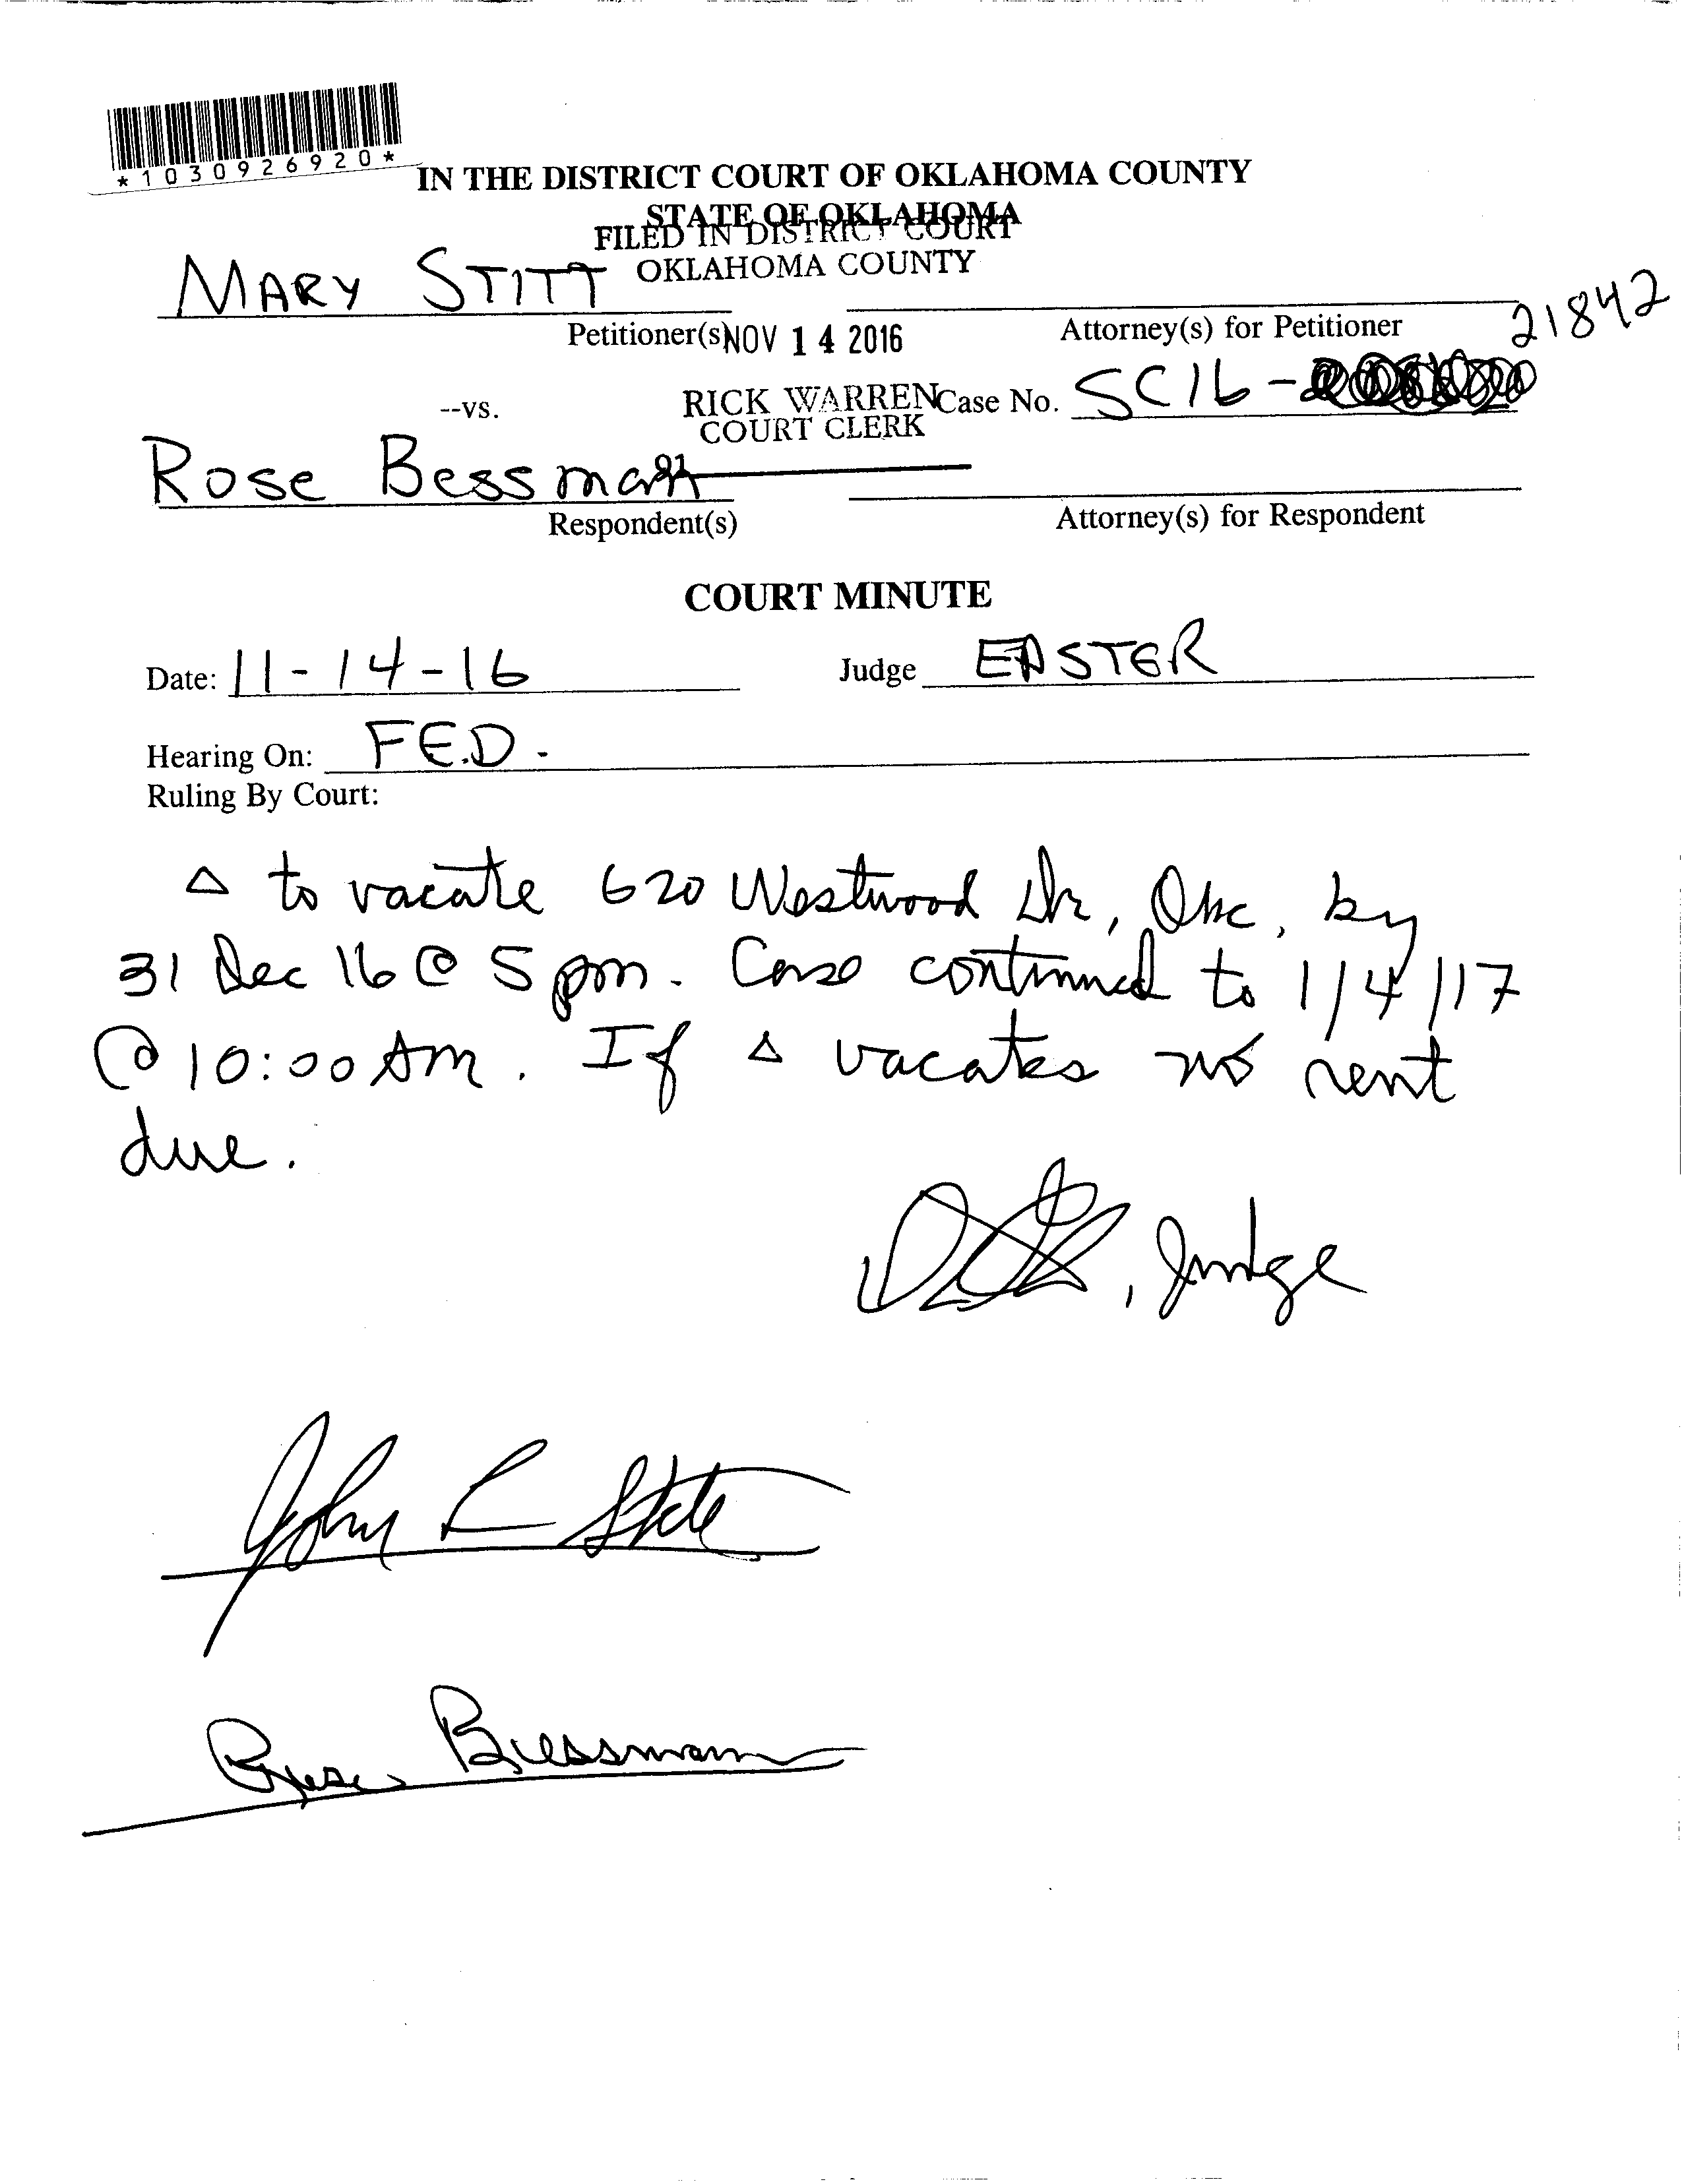 *1030926920*
IN THE DISTRICT COURT OF OKLAHOMA COUNTY
STATE OF OKLAHOMA
FILED IN DISTRICT COURT
OKLAHOMA COUNTY
MARY STITT
Petitioner(s)
Attorney(s) for Petitioner
21842
NOV 14 2016
--vs.
RICK WARREN
COURT CLERK
Case No. SC16-
Rose Bessman
Respondent(s)
Attorney(s) for Respondent
COURT MINUTE
Date: 11-14-16
Judge EASTER
Hearing On: F.E.D.
Ruling By Court:
Δ to vacate 620 Westwood Dr, Okc, by
31 Dec 16 @ 5 pm. Case continued to 1/4/17
@ 10:00 AM. If Δ vacates no rent
due.
, Judge
John L
Rose Bessmann